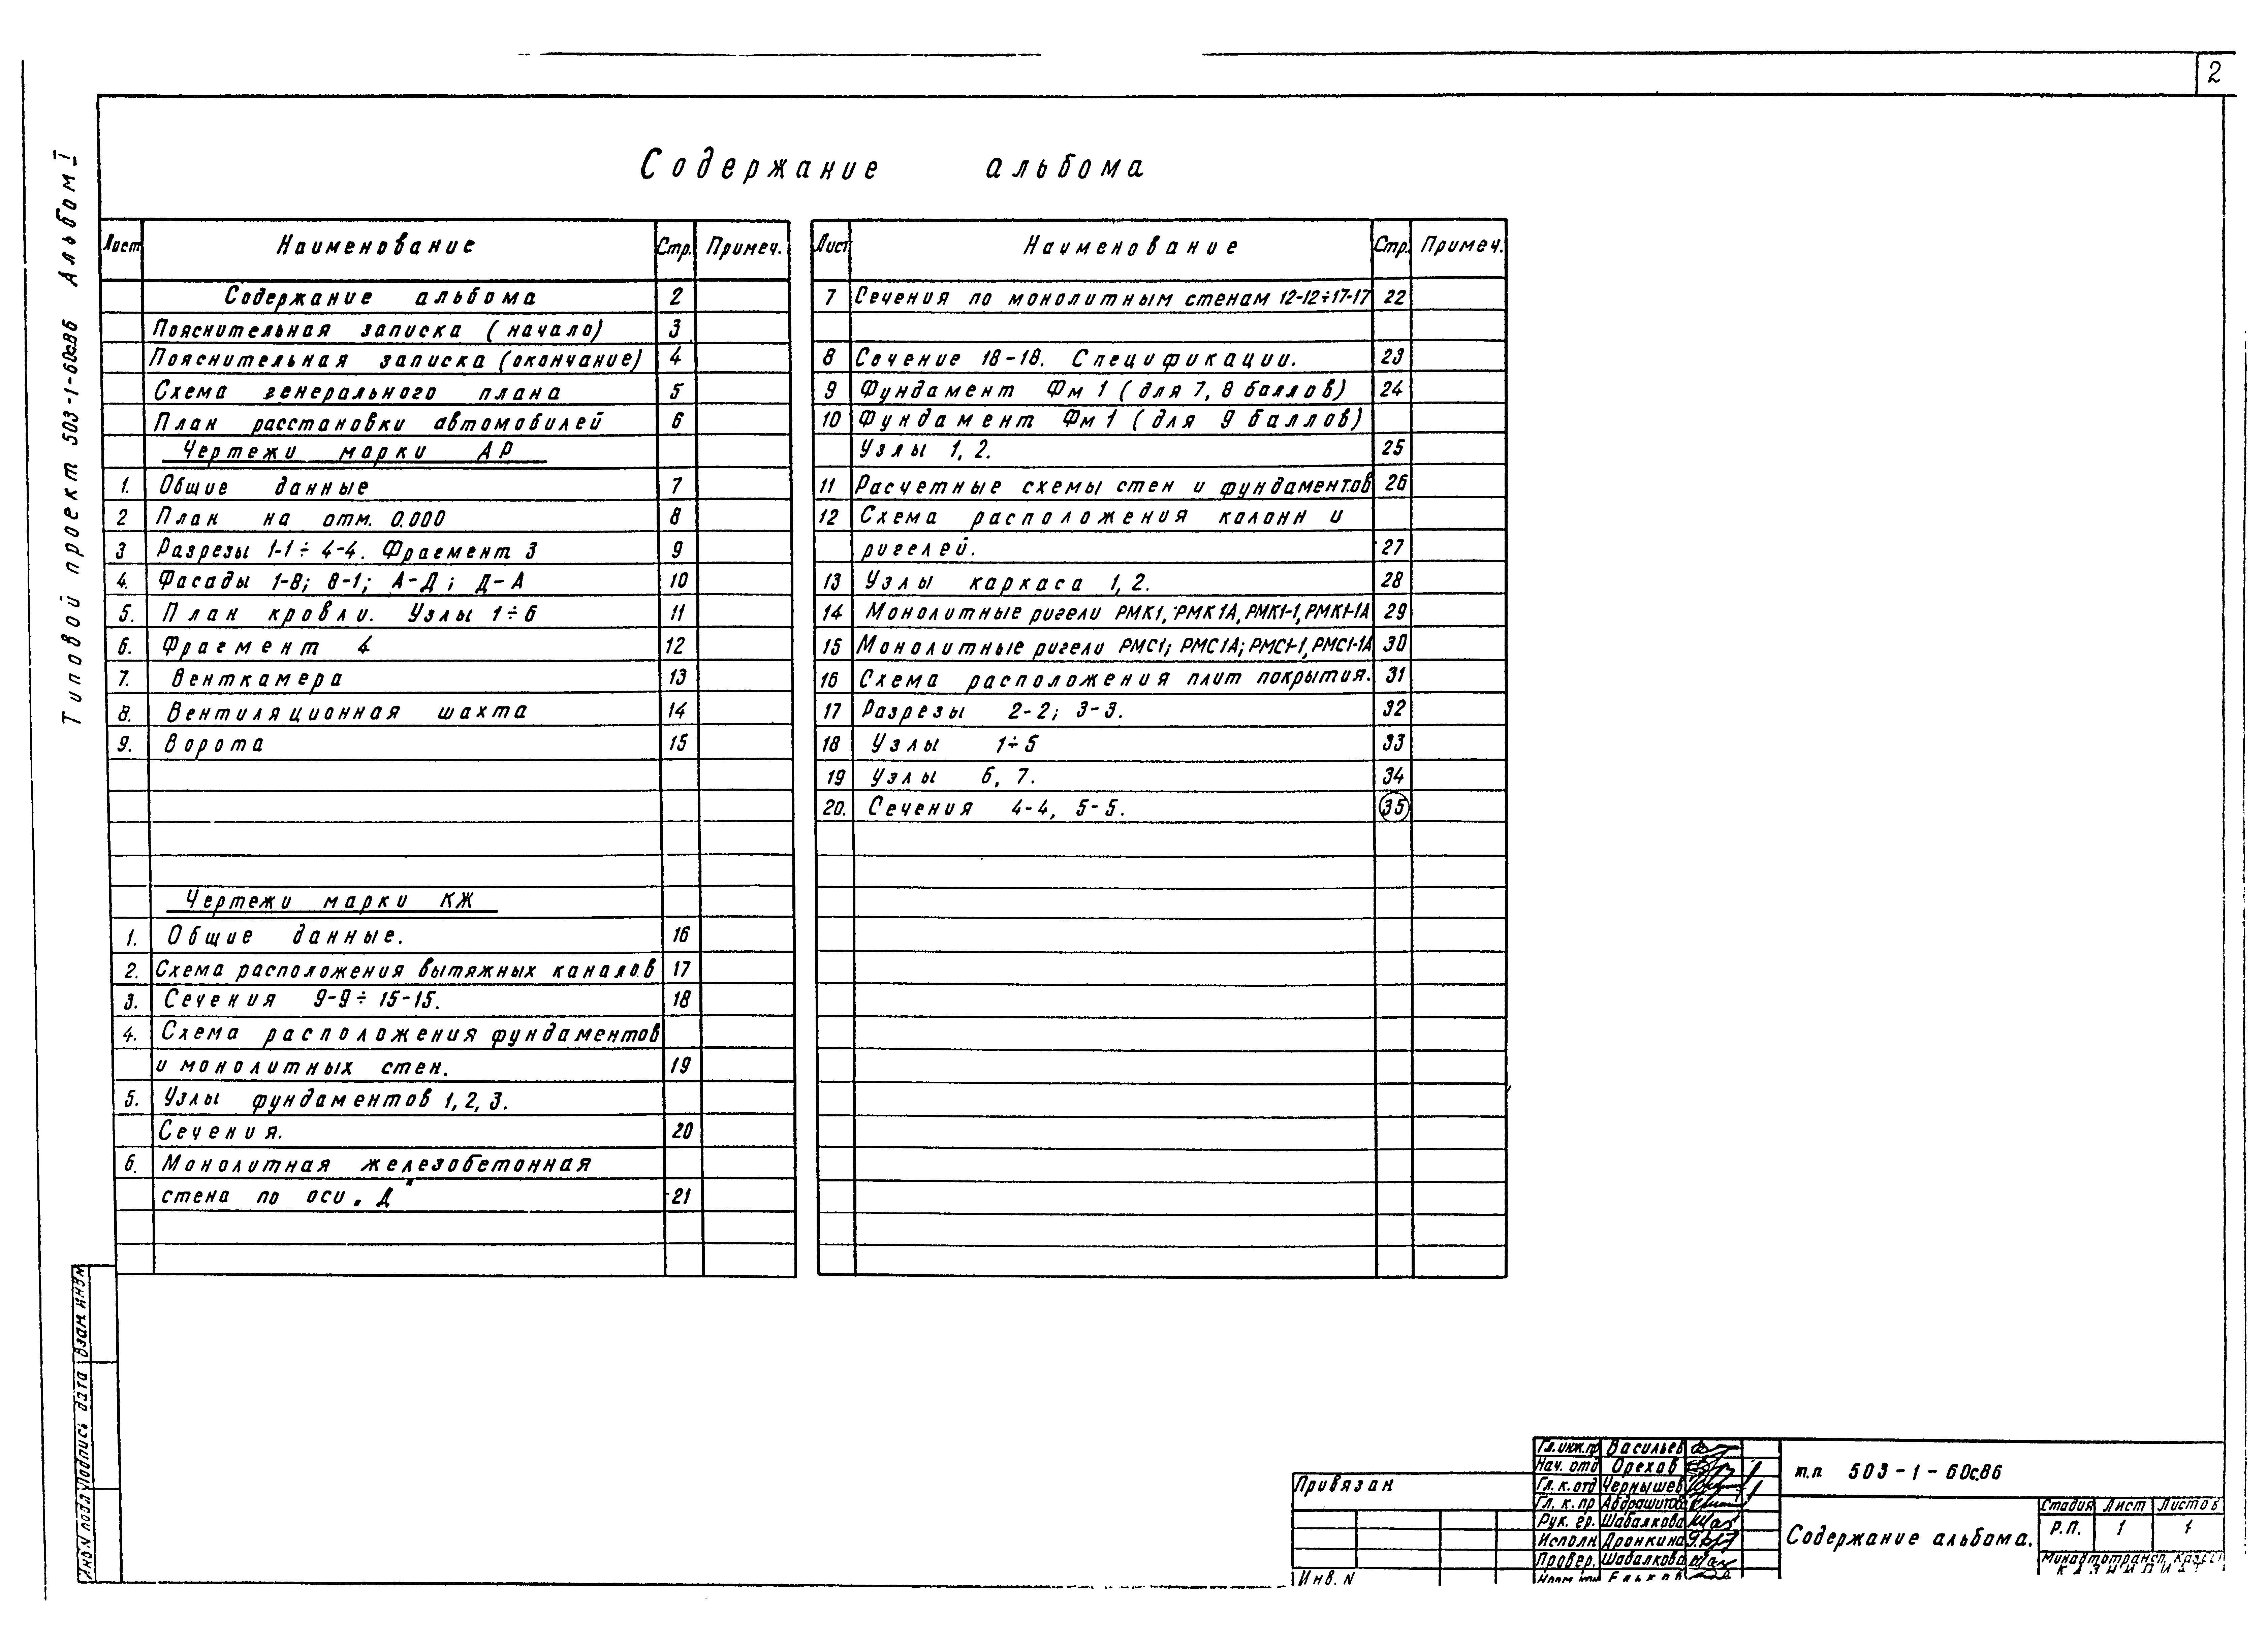 2
Содержание альбома
Типовой проект 503-1-60с.86 Альбом I
Лист Наименование Стр. Примеч.
Содержание альбома 2
Пояснительная записка (начало) 3
Пояснительная записка (окончание) 4
Схема генерального плана 5
План расстановки автомобилей 6
Чертежи марки АР
1. Общие данные 7
2 План на отм. 0.000 8
3 Разрезы 1-1÷4-4. Фрагмент 3 9
4. Фасады 1-8; 8-1; А-Д; Д-А 10
5. План кровли. Узлы 1÷6 11
6. Фрагмент 4 12
7. Венткамера 13
8. Вентиляционная шахта 14
9. Ворота 15
Чертежи марки КЖ
1. Общие данные. 16
2. Схема расположения вытяжных каналов 17
3. Сечения 9-9÷15-15. 18
4. Схема расположения фундаментов
и монолитных стен. 19
5. Узлы фундаментов 1, 2, 3.
Сечения. 20
6. Монолитная железобетонная
стена по оси „Д" 21
Лист Наименование Стр. Примеч.
7 Сечения по монолитным стенам 12-12÷17-17 22
8 Сечение 18-18. Спецификации. 23
9 Фундамент Фм 1 (для 7, 8 баллов) 24
10 Фундамент Фм 1 (для 9 баллов)
Узлы 1, 2. 25
11 Расчетные схемы стен и фундаментов 26
12 Схема расположения колонн и
ригелей. 27
13 Узлы каркаса 1, 2. 28
14 Монолитные ригели РМК1, РМК1А, РМК1-1, РМК1-1А 29
15 Монолитные ригели РМС1; РМС1А; РМС1-1, РМС1-1А 30
16 Схема расположения плит покрытия. 31
17 Разрезы 2-2; 3-3. 32
18 Узлы 1÷5 33
19 Узлы 6, 7. 34
20. Сечения 4-4, 5-5. 35
Инв.N подл Подпись дата Взам. инв N
Привязан
Инв. N
Гл. инж. пр Васильев
Нач. отд Орехов
Гл. к. отд Чернышев
Гл. к. пр Абдрашитов
Рук. гр. Шабалкова
Исполн Дронкина
Провер. Шабалкова
т.п 503-1-60с.86
Содержание альбома.
Стадия Лист Листов
Р.П. 1 1
Минавтотранс